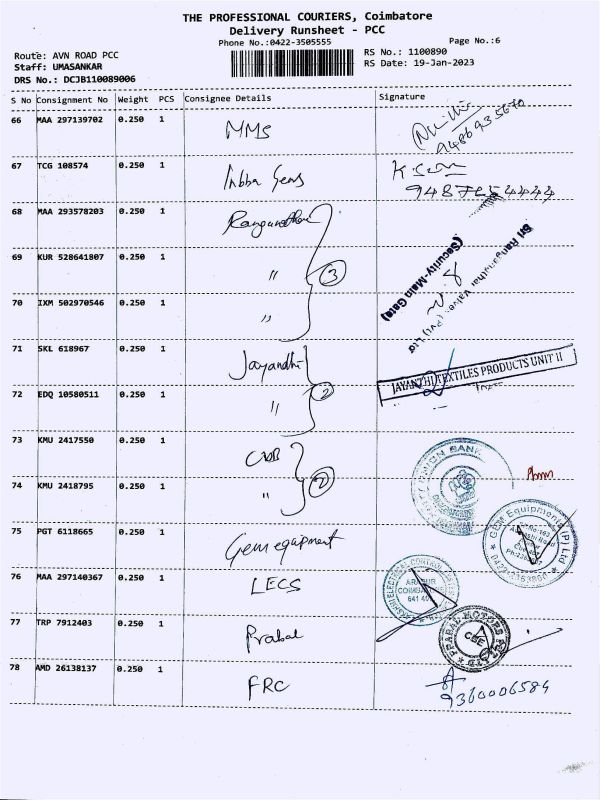 THE PROFESSIONAL COURIERS, Coimbatore
Delivery Runsheet - PCC
Phone No.:0422-3505555
Page No.:6
Route: AVN ROAD PCC
RS No.: 1100890
Staff: UMASANKAR
RS Date: 19-Jan-2023
DRS No.: DCJB110089006
S No Consignment No Weight PCS Consignee Details Signature
66 MAA 297139702 0.250 1 MMS
67 TCG 108574 0.250 1
68 MAA 293578203 0.250 1 Ranganathar
69 KUR 528641807 0.250 1 " 3
Sri Ranganathar Valves (Pvt) Ltd
(Security-Main Gate)
70 IXM 502970546 0.250 1 "
71 SKL 618967 0.250 1 Jayandhi
JAYANTHI TEXTILES PRODUCTS UNIT II
72 EDQ 10580511 0.250 1 " 2
73 KMU 2417550 0.250 1 CUB
UNION BANK
74 KMU 2418795 0.250 1 " 2
75 PGT 6118665 0.250 1 Gem equipment
GEM Equipments (P) Ltd
76 MAA 297140367 0.250 1 LECS
77 TRP 7912403 0.250 1 Prabal
PRABAL MOTORS
CBE
78 AMD 26138137 0.250 1 FRC
9360006584